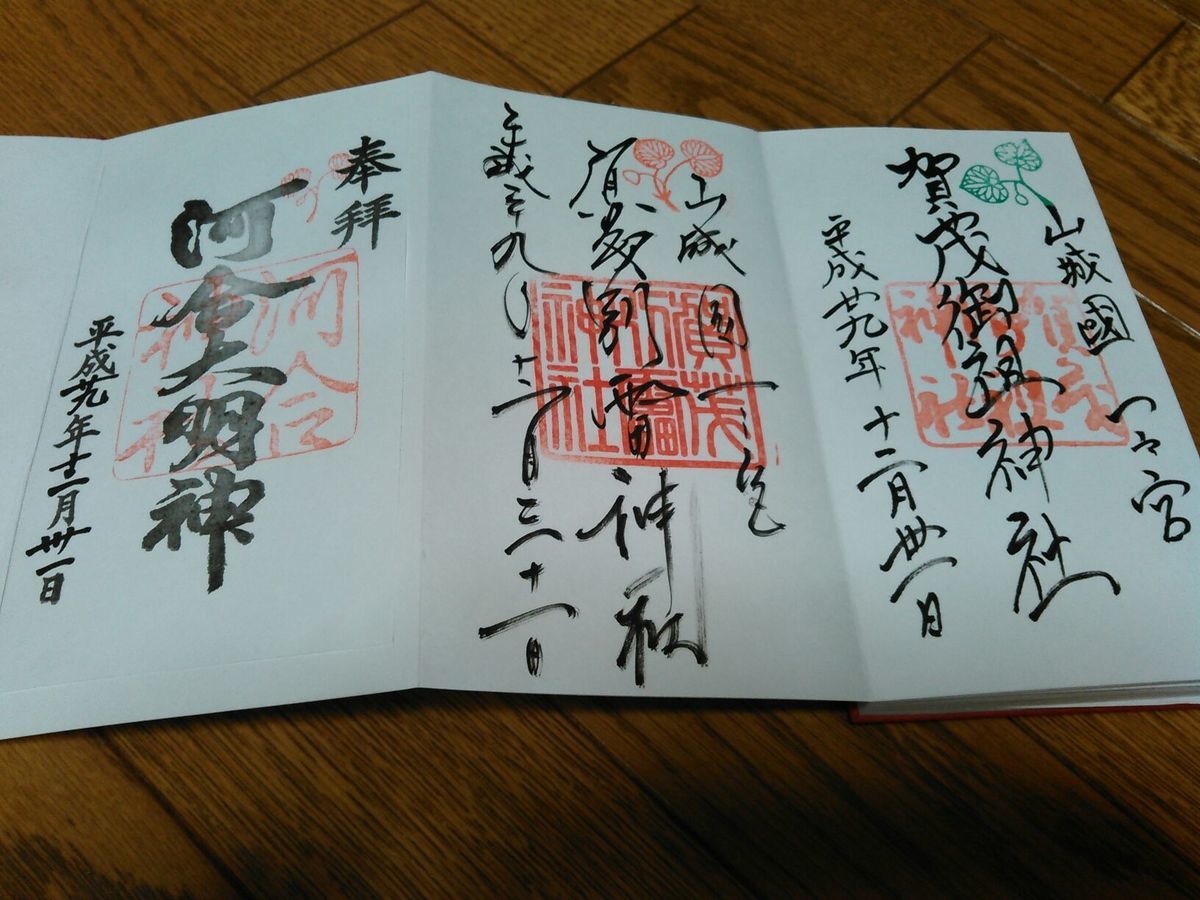 山城國一之宮
賀茂御祖神社
平成廿九年十二月卅一日
山城國一之宮
賀茂別雷神社
平成二十九年十二月三十一日
賀茂
別雷
神社
奉拝
河合大明神
平成廿九年十二月卅一日
河合
神社